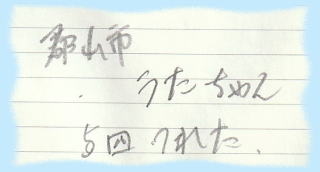 郡山市
うたちゃん
5回 つれた.